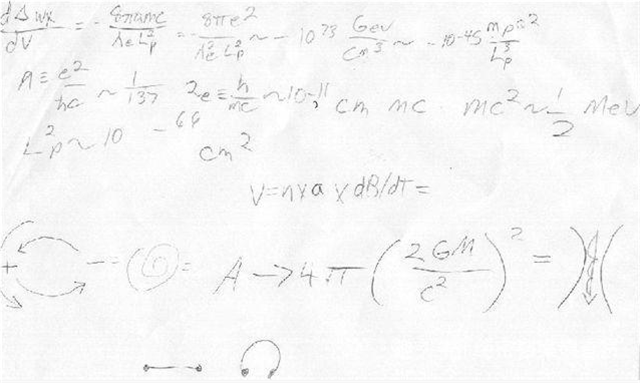 dΔwx/dV = - 8παmc/λeLp² = - 8πe²/λe²Lp² ~ - 10^73 Gev/cm³ ~ - 10^-45 mpc²/Lp³
A ≡ e²/hc ~ 1/137 λe ≡ h/mc ~ 10^-11, cm mc · mc² ~ 1/2 MeV
L²p ~ 10^-66 cm²
V = n x a x dB/dT =
+ — = A → 4π (2GM/c²)² =